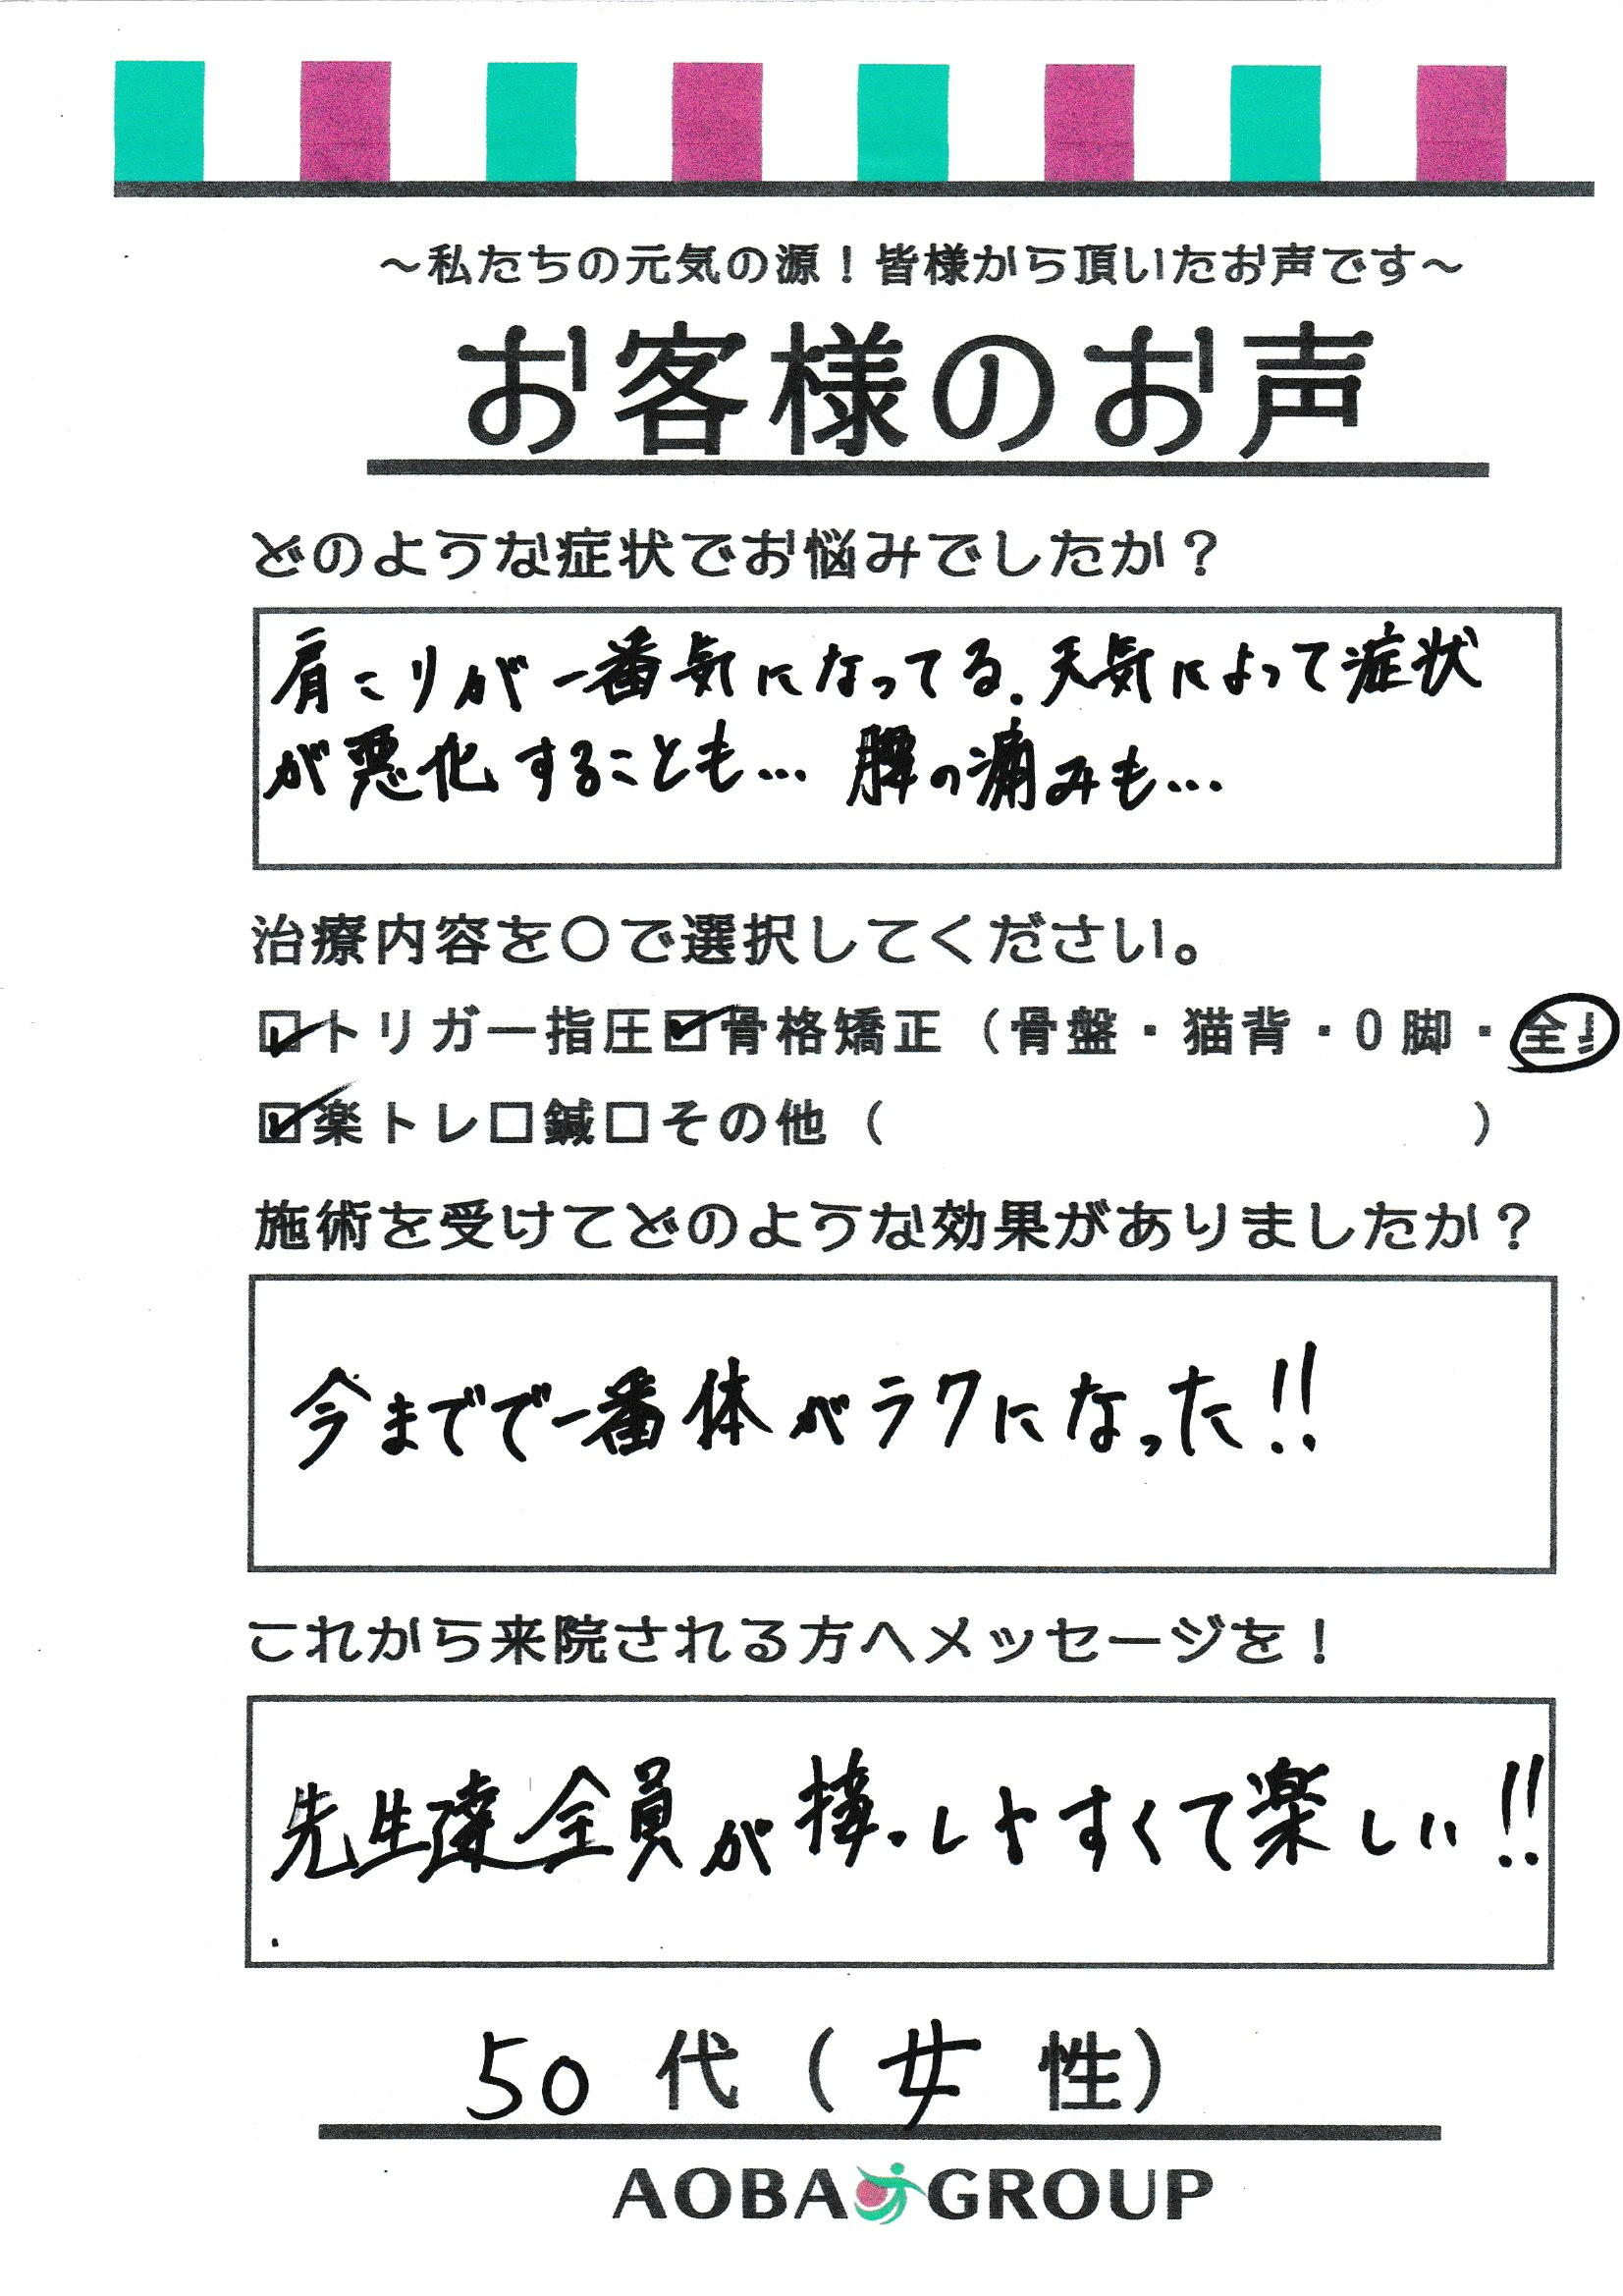 ～私たちの元気の源！皆様から頂いたお声です～
お客様のお声
どのような症状でお悩みでしたか？
肩こりが一番気になってる.天気によって症状
が悪化することも… の痛みも…
治療内容を〇で選択してください。
☑トリガー指圧☑骨格矯正（骨盤・猫背・O脚・全
☑楽トレ□鍼□その他（　　　　　）
施術を受けてどのような効果がありましたか？
今までで一番体がラクになった!!
これから来院される方へメッセージを！
先生達全員が接しやすくて楽しい!!
50代（女性）
AOBA GROUP